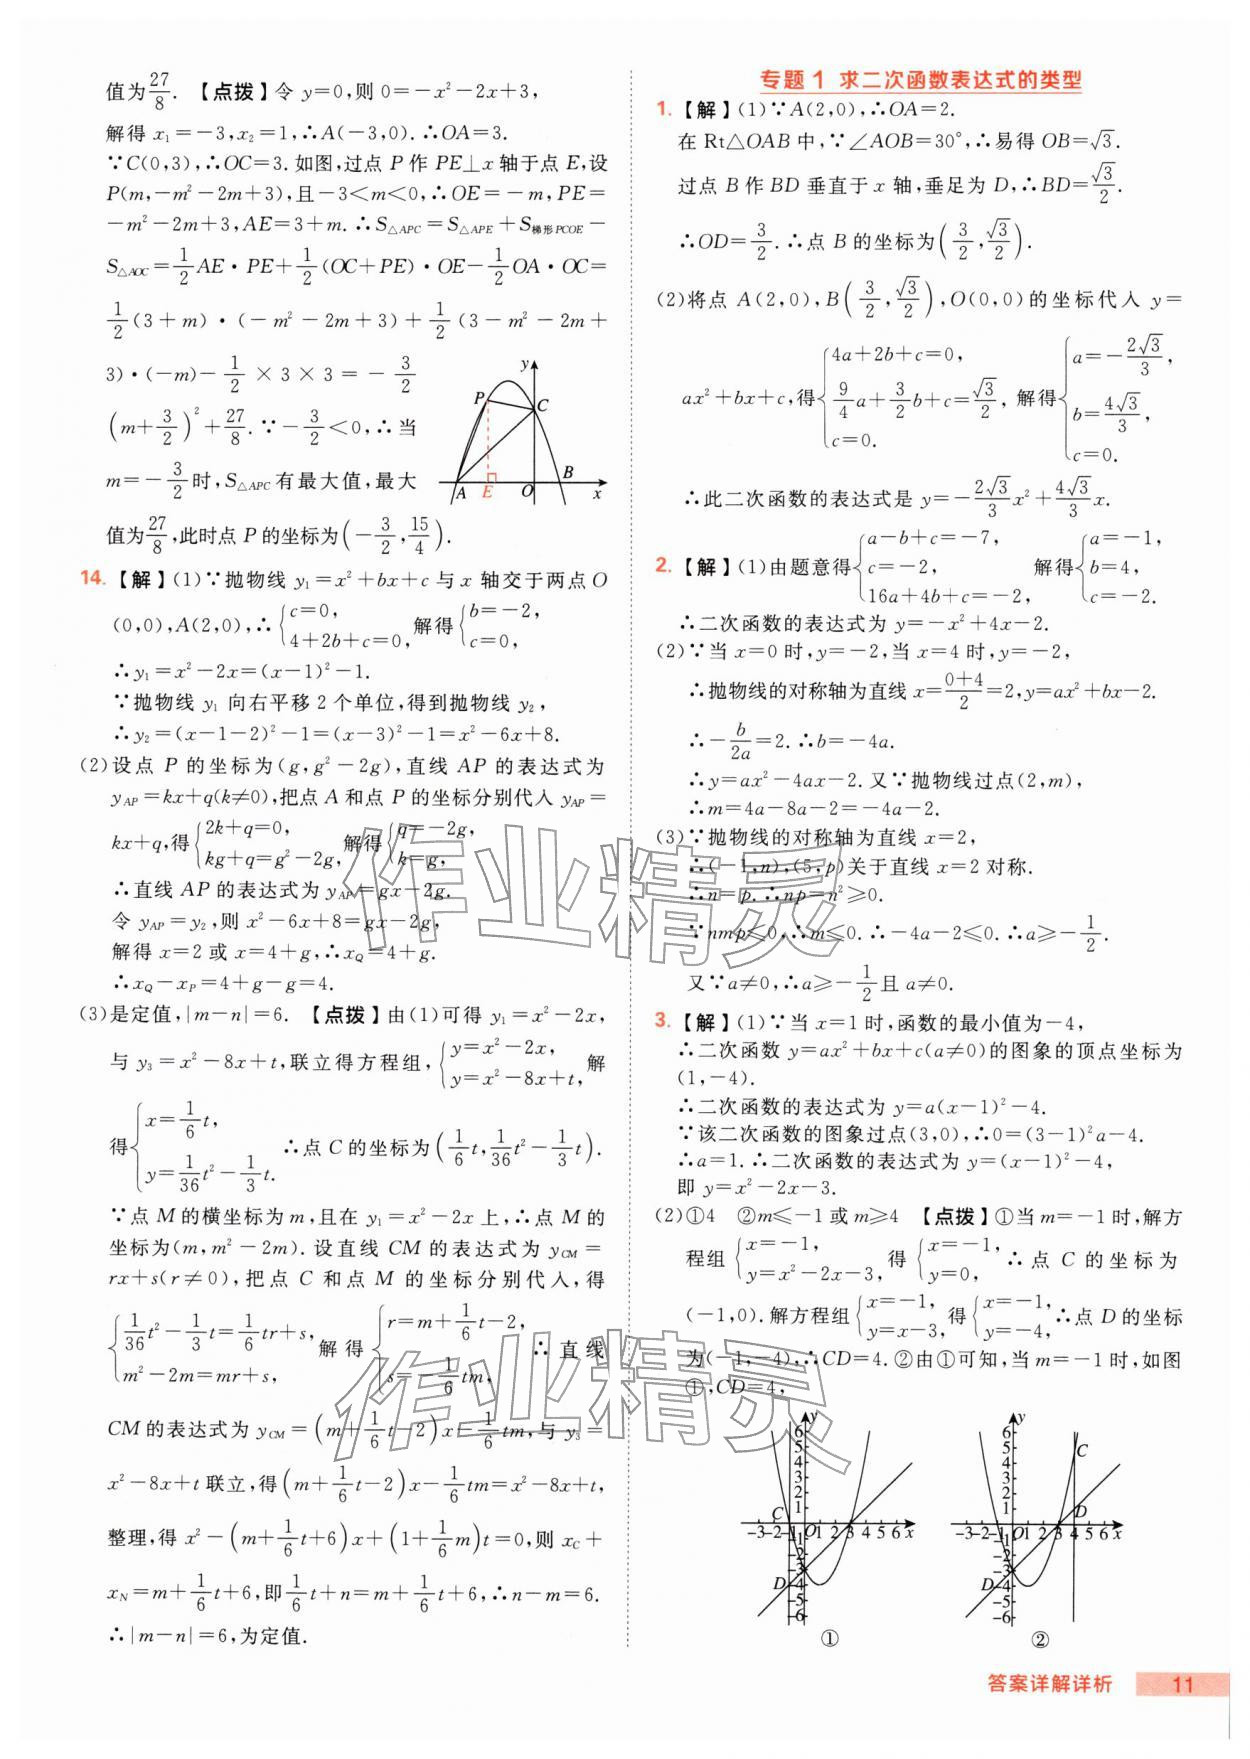 值为27/8. 【点拨】令 y=0,则 0=-x²-2x+3,
解得 x₁=-3,x₂=1,∴A(-3,0).∴OA=3.
∵C(0,3),∴OC=3.如图,过点 P 作 PE⊥x 轴于点 E,设
P(m,-m²-2m+3),且-3<m<0,∴OE=-m,PE=
-m²-2m+3,AE=3+m.∴S△APC=S△APE+S梯形PCOE-
S△AOC=1/2 AE·PE+1/2(OC+PE)·OE-1/2 OA·OC=
1/2(3+m)·(-m²-2m+3)+1/2(3-m²-2m+
3)·(-m)-1/2×3×3=-3/2
(m+3/2)²+27/8.∵-3/2<0,∴当
m=-3/2时,S△APC有最大值,最大
值为27/8,此时点 P 的坐标为(-3/2,15/4).
y
P
C
A
E
O
B
x
14. 【解】(1)∵抛物线 y₁=x²+bx+c 与 x 轴交于两点 O
(0,0),A(2,0),∴{c=0, 4+2b+c=0,解得{b=-2, c=0,
∴y₁=x²-2x=(x-1)²-1.
∵抛物线 y₁ 向右平移 2 个单位,得到抛物线 y₂,
∴y₂=(x-1-2)²-1=(x-3)²-1=x²-6x+8.
(2)设点 P 的坐标为(g,g²-2g),直线 AP 的表达式为
yAP=kx+q(k≠0),把点 A 和点 P 的坐标分别代入 yAP=
kx+q,得{2k+q=0, kg+q=g²-2g,解得{q=-2g, k=g,
∴直线 AP 的表达式为 yAP=gx-2g.
令 yAP=y₂,则 x²-6x+8=gx-2g,
解得 x=2 或 x=4+g,∴xQ=4+g.
∴xQ-xP=4+g-g=4.
(3)是定值,|m-n|=6. 【点拨】由(1)可得 y₁=x²-2x,
与 y₃=x²-8x+t,联立得方程组,{y=x²-2x, y=x²-8x+t,解
得{x=1/6 t, y=1/36 t²-1/3 t. ∴点 C 的坐标为(1/6 t,1/36 t²-1/3 t).
∵点 M 的横坐标为 m,且在 y₁=x²-2x 上,∴点 M 的
坐标为(m,m²-2m).设直线 CM 的表达式为 yCM=
rx+s(r≠0),把点 C 和点 M 的坐标分别代入,得
{1/36 t²-1/3 t=1/6 tr+s, m²-2m=mr+s,解得{r=m+1/6 t-2, s=-1/6 tm, ∴直线
CM 的表达式为 yCM=(m+1/6 t-2)x-1/6 tm,与 y₃=
x²-8x+t 联立,得(m+1/6 t-2)x-1/6 tm=x²-8x+t,
整理,得 x²-(m+1/6 t+6)x+(1+1/6 m)t=0,则 xC+
xN=m+1/6 t+6,即1/6 t+n=m+1/6 t+6,∴n-m=6.
∴|m-n|=6,为定值.
专题 1 求二次函数表达式的类型
1. 【解】(1)∵A(2,0),∴OA=2.
在 Rt△OAB 中,∵∠AOB=30°,∴易得 OB=√3.
过点 B 作 BD 垂直于 x 轴,垂足为 D,∴BD=√3/2.
∴OD=3/2.∴点 B 的坐标为(3/2,√3/2).
(2)将点 A(2,0),B(3/2,√3/2),O(0,0)的坐标代入 y=
ax²+bx+c,得{4a+2b+c=0, 9/4 a+3/2 b+c=√3/2, c=0. 解得{a=-2√3/3, b=4√3/3, c=0.
∴此二次函数的表达式是 y=-2√3/3 x²+4√3/3 x.
2. 【解】(1)由题意得{a-b+c=-7, c=-2, 16a+4b+c=-2, 解得{a=-1, b=4, c=-2.
∴二次函数的表达式为 y=-x²+4x-2.
(2)∵当 x=0 时,y=-2,当 x=4 时,y=-2,
∴抛物线的对称轴为直线 x=0+4/2=2,y=ax²+bx-2.
∴-b/2a=2.∴b=-4a.
∴y=ax²-4ax-2.又∵抛物线过点(2,m),
∴m=4a-8a-2=-4a-2.
(3)∵抛物线的对称轴为直线 x=2,
∴(-1,n),(5,p)关于直线 x=2 对称.
∴n=p.∴np=n²≥0.
∵nmp≤0,∴m≤0.∴-4a-2≤0.∴a≥-1/2.
又∵a≠0,∴a≥-1/2且 a≠0.
3. 【解】(1)∵当 x=1 时,函数的最小值为-4,
∴二次函数 y=ax²+bx+c(a≠0)的图象的顶点坐标为
(1,-4).
∴二次函数的表达式为 y=a(x-1)²-4.
∵该二次函数的图象过点(3,0),∴0=(3-1)²a-4.
∴a=1.∴二次函数的表达式为 y=(x-1)²-4,
即 y=x²-2x-3.
(2)①4 ②m≤-1或m≥4 【点拨】①当 m=-1 时,解方
程组{x=-1, y=x²-2x-3, 得{x=-1, y=0, ∴点 C 的坐标为
(-1,0).解方程组{x=-1, y=x-3,得{x=-1, y=-4,∴点 D 的坐标
为(-1,-4),∴CD=4.②由①可知,当 m=-1 时,如图
①,CD=4,
y
6
5
4
3
2
1
C
-3-2-1 O 1 2 3 4 5 6 x
-1
-2
-3
D -4
-5
-6
①
y
6
5
4
3
2
1
C
D
-3-2-1 O 1 2 3 4 5 6 x
-1
-2
-3
D -4
-5
-6
②
作业精灵
作业精灵
答案详解详析 11